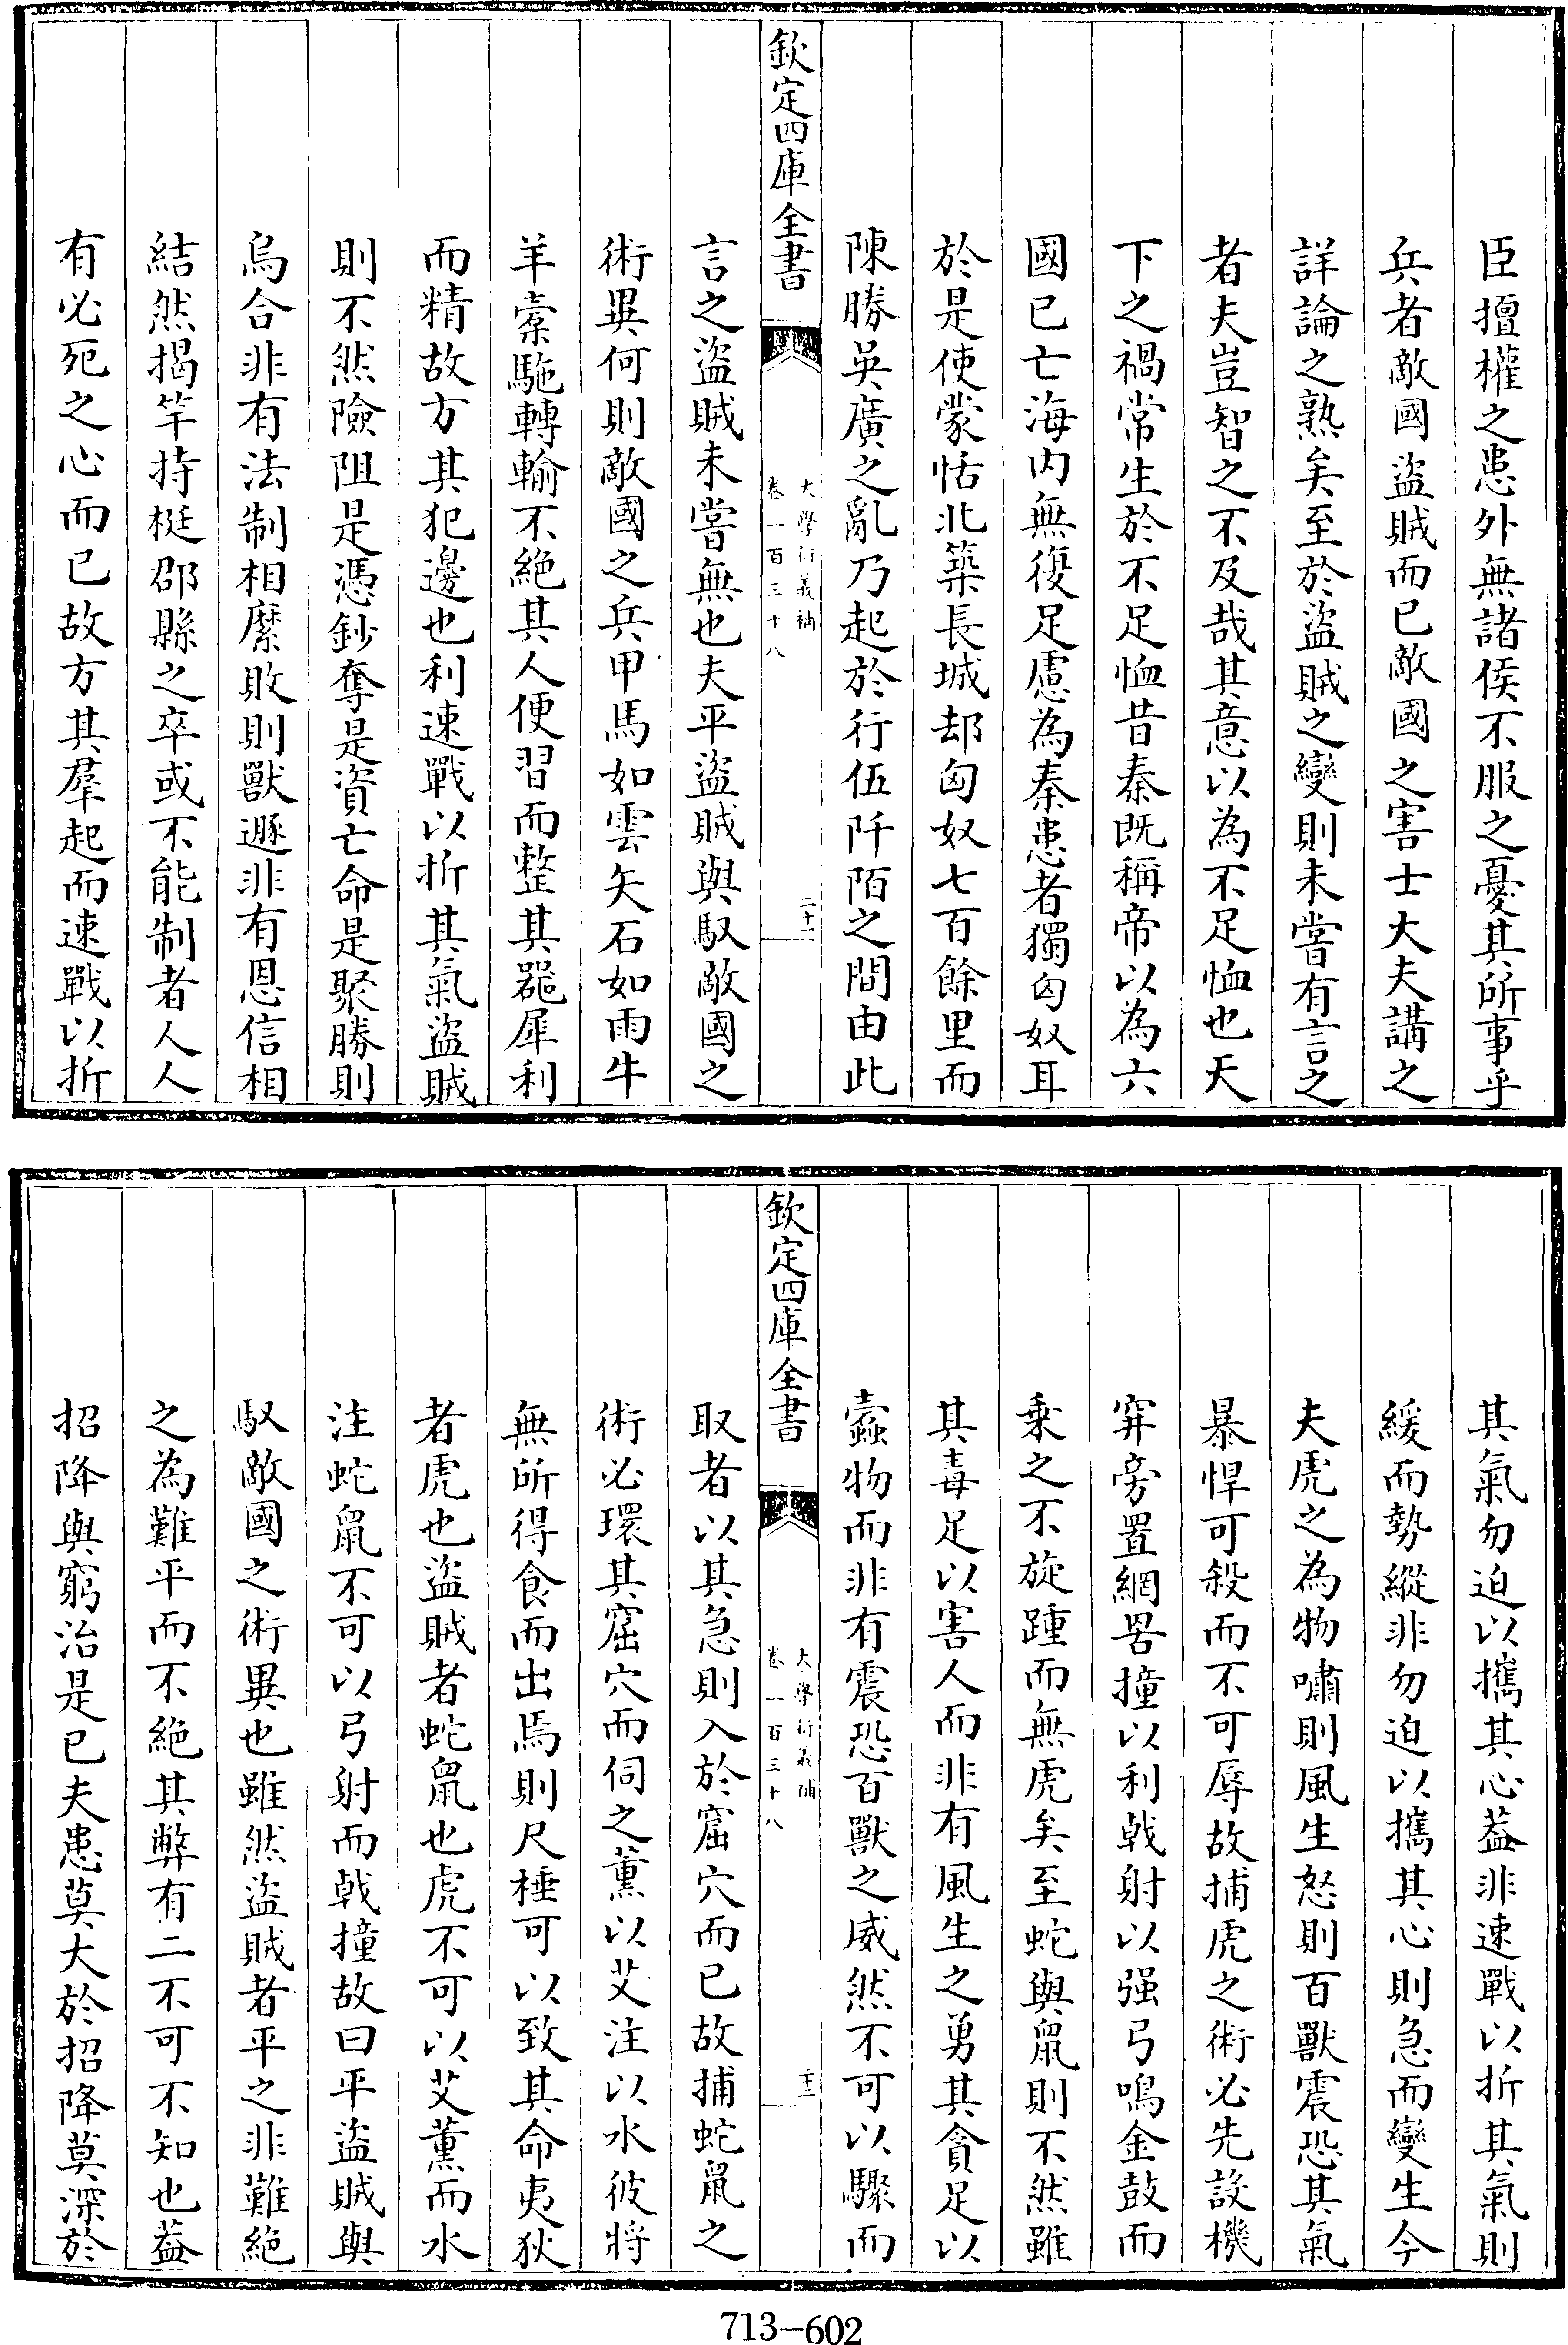 臣擅權之患外無諸侯不服之憂其所事乎
兵者敵國盜賊而已敵國之害士大夫講之
詳論之熟矣至於盜賊之變則未嘗有言之
者夫豈智之不及哉其意以為不足恤也天
下之禍常生於不足恤昔秦既稱帝以為六
國已亡海内無復足慮為秦患者獨匈奴耳
於是使蒙恬北築長城却匈奴七百餘里而
陳勝吳廣之亂乃起於行伍阡陌之間由此
欽定四庫全書
大學衍義補
卷一百三十八
二十一
言之盜賊未嘗無也夫平盜賊與馭敵國之
術異何則敵國之兵甲馬如雲矢石如雨牛
羊橐駞轉輸不絶其人便習而整其器犀利
而精故方其犯邊也利速戰以折其氣盜賊
則不然險阻是憑鈔奪是資亡命是聚勝則
烏合非有法制相縻敗則獸遯非有恩信相
結然揭竿持梃郡縣之卒或不能制者人人
有必死之心而已故方其羣起而速戰以折
其氣勿迫以攜其心蓋非速戰以折其氣則
緩而勢縱非勿迫以攜其心則急而變生今
夫虎之為物嘯則風生怒則百獸震恐其氣
暴悍可殺而不可辱故捕虎之術必先設機
穽旁置網罟撞以利戟射以强弓鳴金鼓而
乗之不旋踵而無虎矣至蛇與鼠則不然雖
其毒足以害人而非有風生之勇其貪足以
蠧物而非有震恐百獸之威然不可以驟而
欽定四庫全書
大學衍義補
卷一百三十八
取者以其急則入於窟穴而已故捕蛇鼠之
術必環其窟穴而伺之薰以艾注以水彼將
無所得食而出焉則尺棰可以致其命夷狄
者虎也盜賊者蛇鼠也虎不可以艾薰而水
注蛇鼠不可以弓射而戟撞故曰平盜賊與
馭敵國之術異也雖然盜賊者平之非難絶
之為難平而不絶其弊有二不可不知也蓋
招降與窮治是已夫患莫大於招降莫深於
713-602